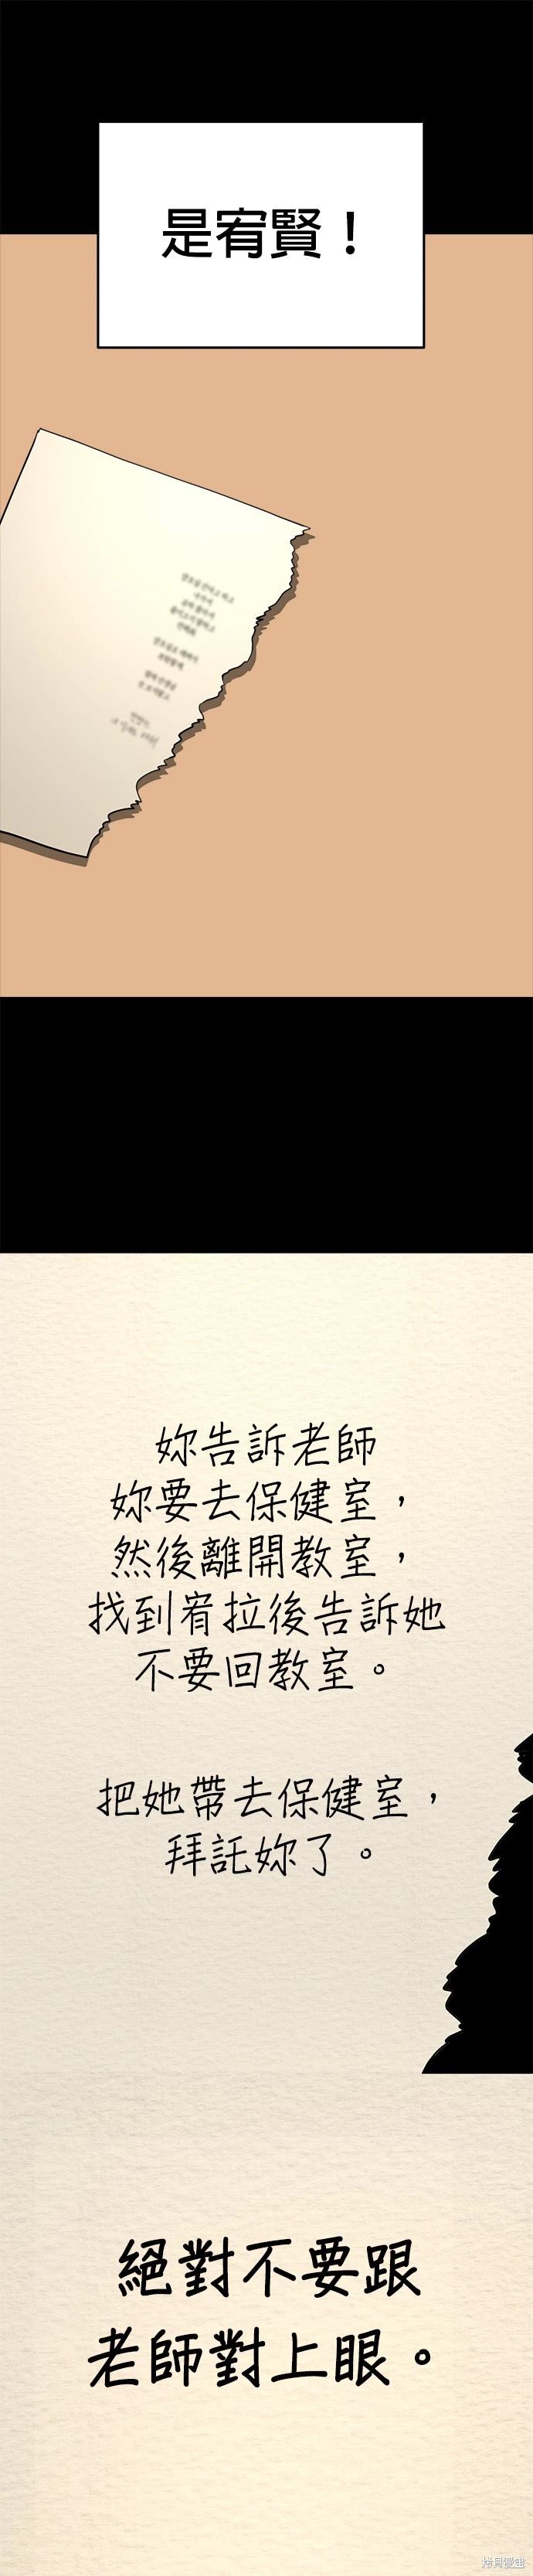 是宥賢！
妳告訴老師
妳要去保健室，
然後離開教室，
找到宥拉後告訴她
不要回教室。
把她帶去保健室，
拜託妳了。
絕對不要跟
老師對上眼。
拷貝漫畫